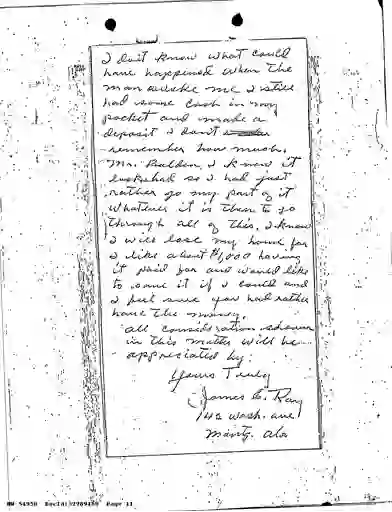 I don't know what could
have happened when the
man awoke me I still
had some cash in my
pocket and made a
deposit I don't
remember how much.
Mr. I know it
looks bad so I had just
rather go my part of it
whatever it is then to go
through all of this. I know
I will lose my home for
I like about $1,000 having
it paid for and would like
to save it if I could and
I feel sure you had rather
have the money.
all consideration shown
in this matter will be
appreciated by.
Yours Truly
James C. Ray
142 Wash. ave
Montg. Ala
NW 54950 Page 11